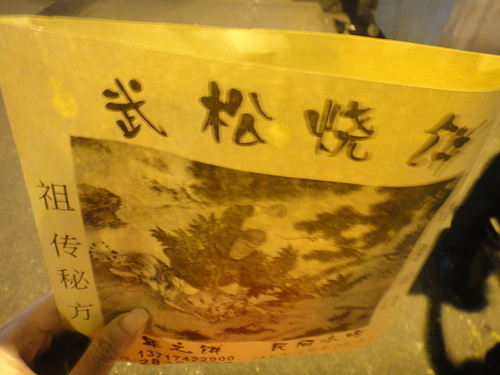 武松烧饼
祖传秘方
年之饼 民
13717422900
28